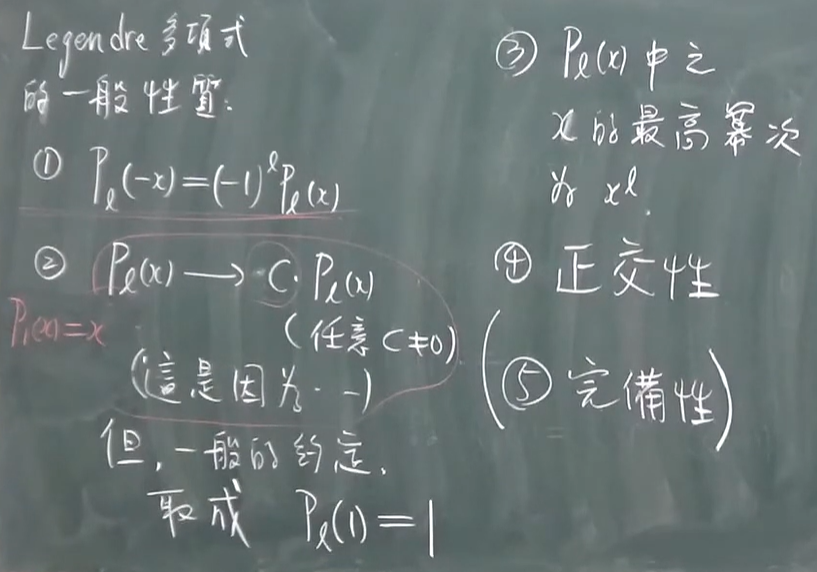 Legendre 多項式
的一般性質:
① Pℓ(-x)=(-1)^ℓ Pℓ(x)
② Pℓ(x) → C· Pℓ(x)
P₁(x)=x
(任意 C≠0)
(這是因為··-)
但,一般的約定,
取成 Pℓ(1)=1
③ Pℓ(x) 中之
x 的最高冪次
为 x^ℓ.
④ 正交性
(⑤ 完備性)